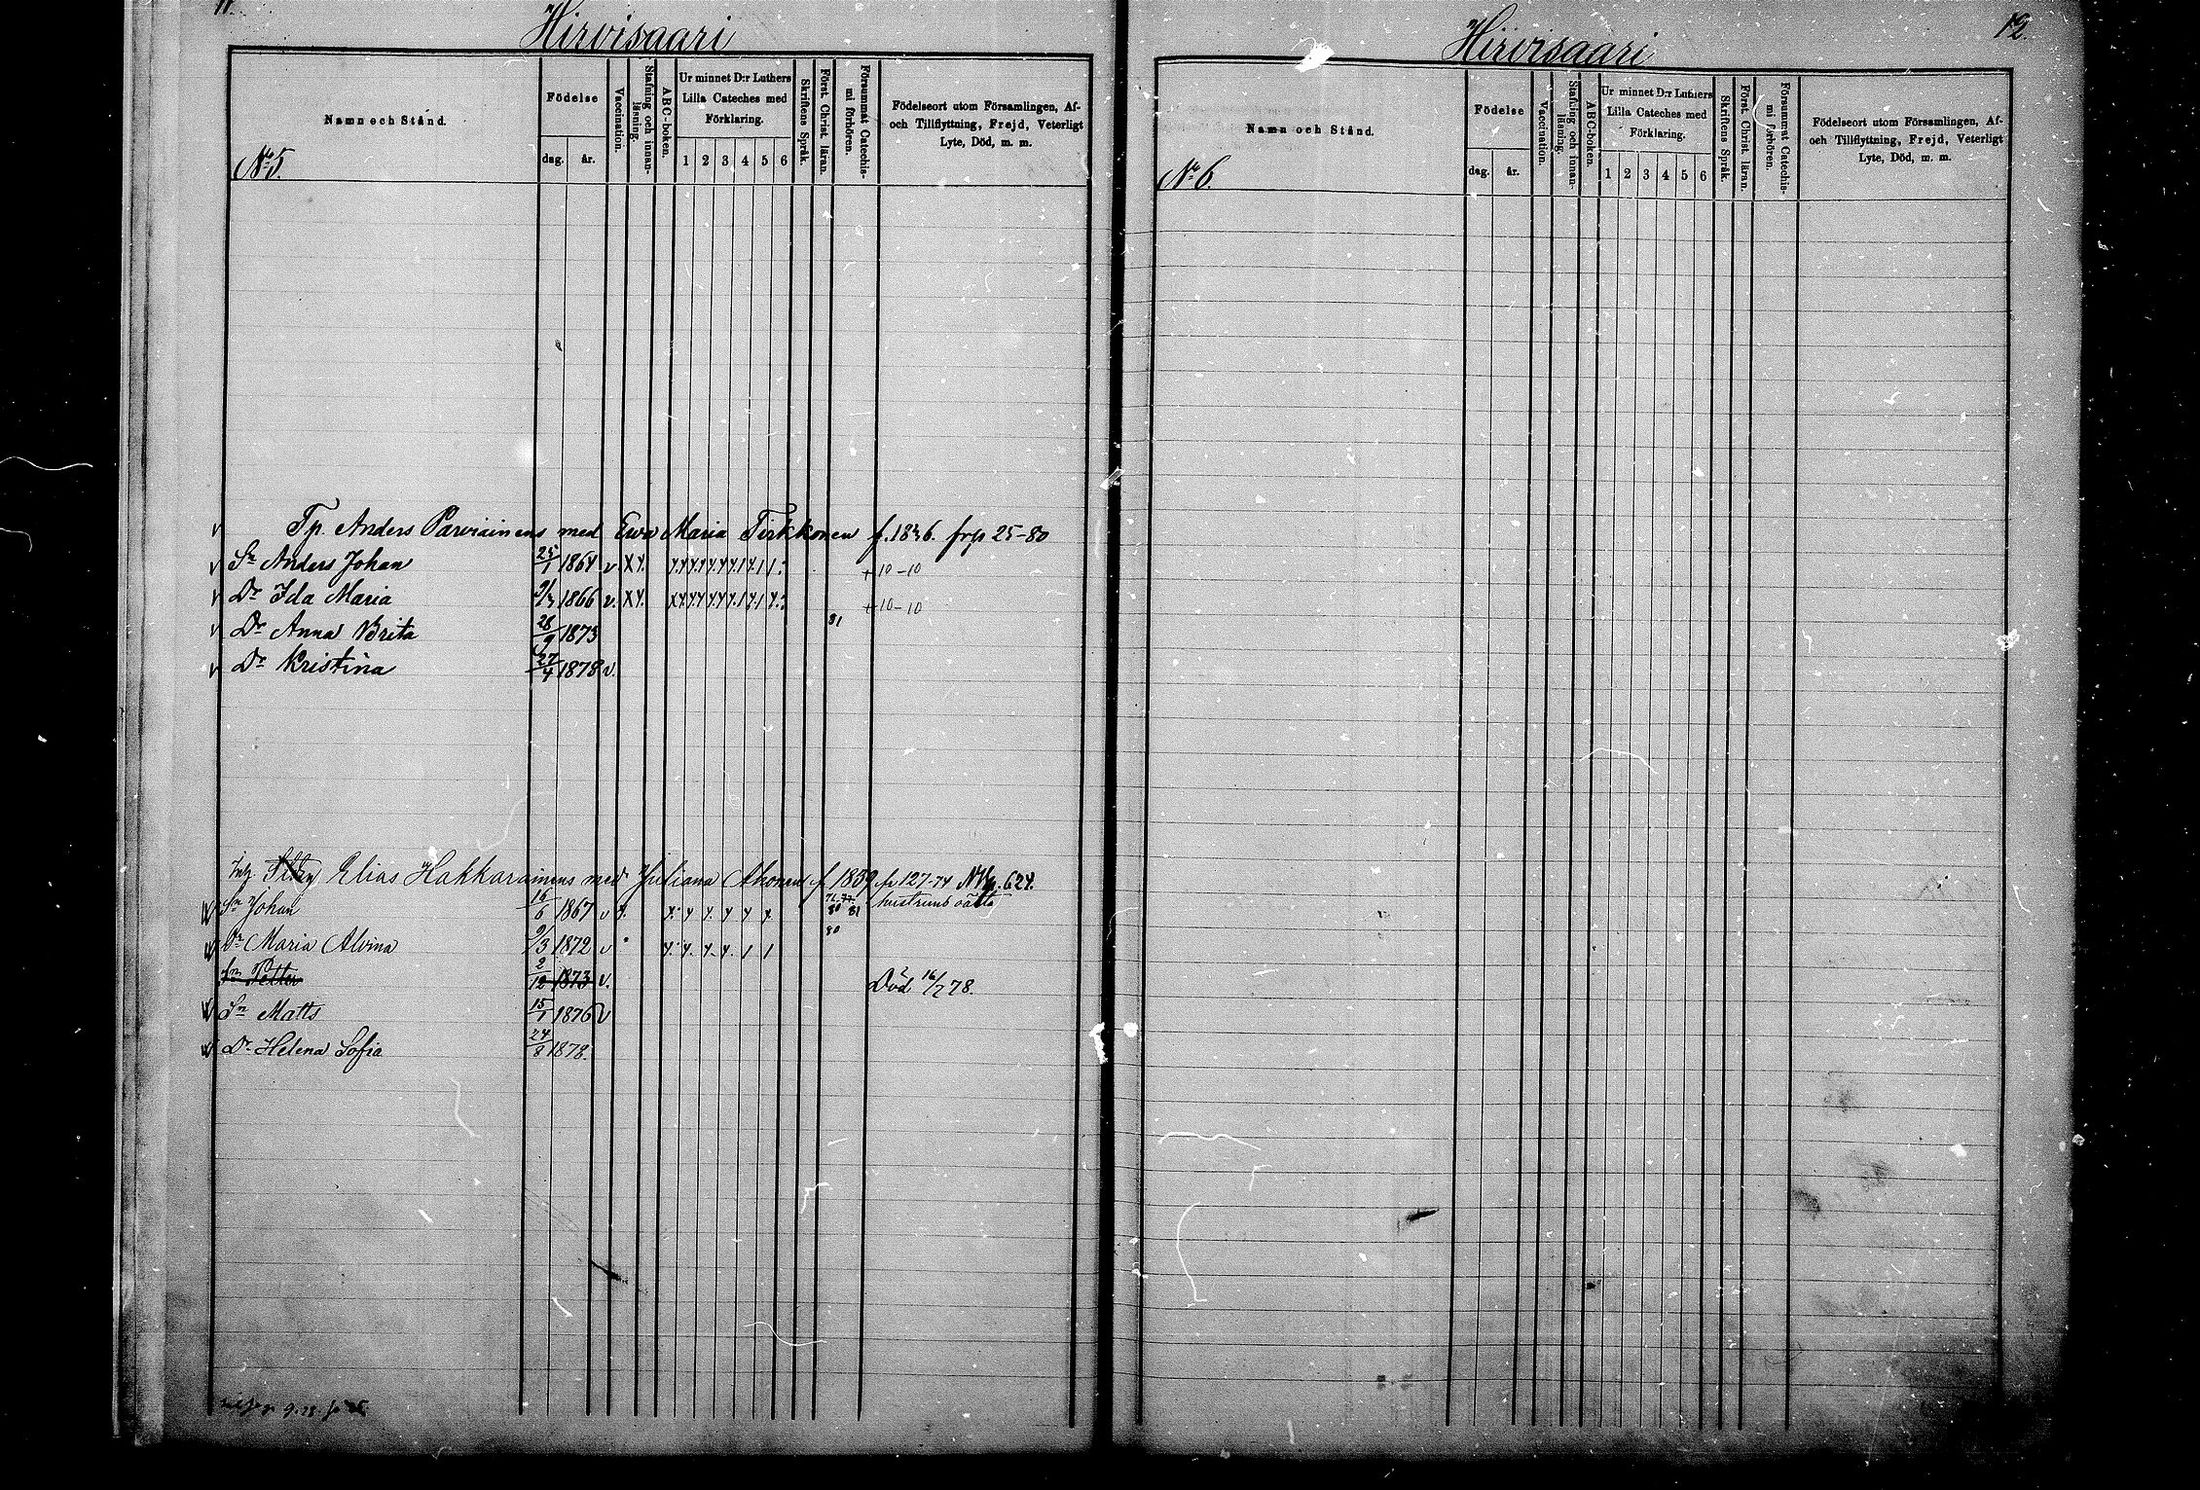 11.
Hirvisaari
Namn och Stånd.
Födelse
dag. år.
Vaccination.
Stafning och innan-läsning.
ABC-boken.
Ur minnet D:r Luthers Lilla Cateches med Förklaring.
1 2 3 4 5 6
Skriftens Språk.
Först. Christ. läran.
Försummat Catechis-mi förhören.
Födelseort utom Församlingen, Af-
och Tillflyttning, Frejd, Veterligt
Lyte, Död, m. m.
No 5.
Tp. Anders Parviainens med Ewa Maria Tirkkonen f. 1836. frp 25-80
Sn Anders Johan 25/1 1864 v. +10-10
Dr Ida Maria 9/3 1866 v. +10-10
Dr Anna Brita 28/9 1873 81
Dr Kristina 27/4 1878 v.
Inh Elias Hakkarainens med Juliana Ahonen f 1839 fr 127-74 624.
Sn Johan 16/6 1867 v 80 81 hustruns oäkta
Dr Maria Alvina 9/3 1872 v 80
Sn Petter 2/12 1873 v. Död 16/7 78.
Sn Matts 15/1 1876 v
Dr Helena Sofia 24/8 1878.
12.
Hirvisaari
Namn och Stånd.
Födelse
dag. år.
Vaccination.
Stafning och innan-läsning.
ABC-boken.
Ur minnet D:r Luthers Lilla Cateches med Förklaring.
1 2 3 4 5 6
Skriftens Språk.
Först. Christ. läran.
Försummat Catechis-mi förhören.
Födelseort utom Församlingen, Af-
och Tillflyttning, Frejd, Veterligt
Lyte, Död, m. m.
No 6.